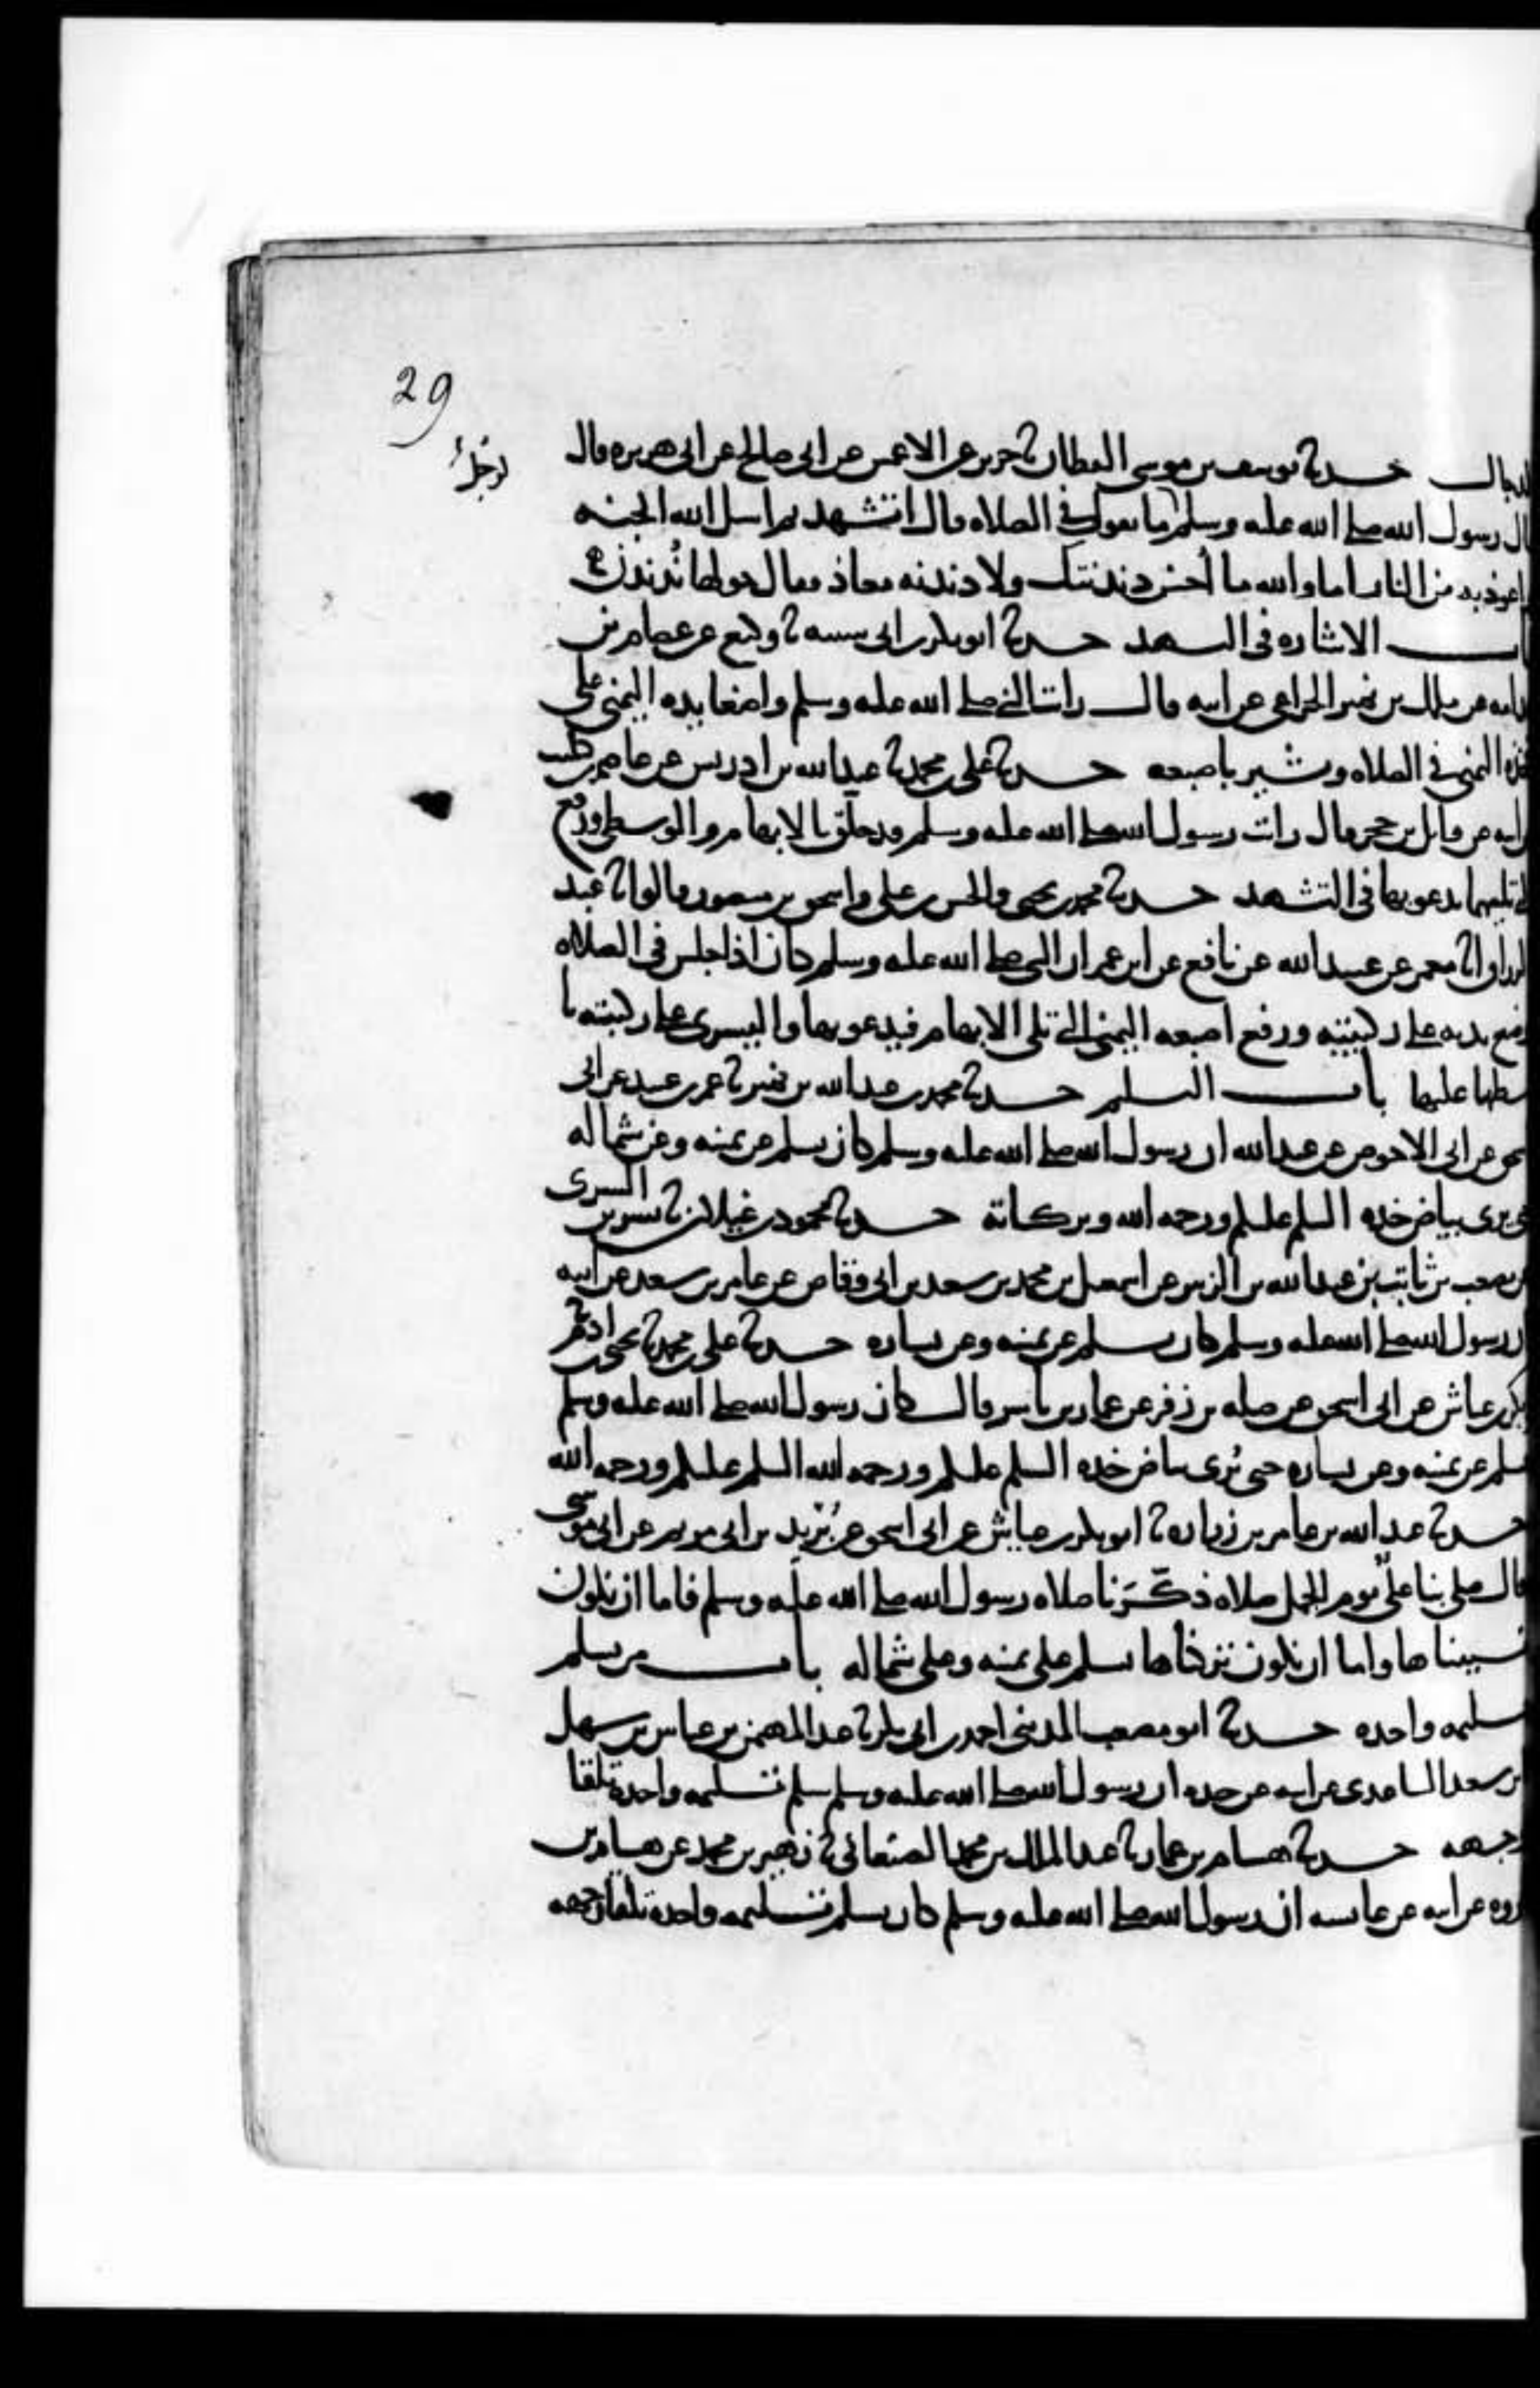 29
لرجل
الدجال حدثنا يوسف بن موسى القطان ثنا جرير عن الاعمش عن ابى صالح عن ابى هريره قال
قال رسول الله صلى الله عليه وسلم ما تقول فى الصلاه قال اتشهد ثم اسل الله الجنه
واعوذ به من النار اما والله ما أحسن دندنتك ولا دندنه معاذ فقال حولها نُدندن
باب الاشاره فى التشهد حدثنا ابو بكر بن ابى شيبه ثنا وكيع عن عصام بن
قدامه عن ملك بن نمير الخزاعى عن ابيه قال رايت النبى صلى الله عليه وسلم واضعا يده اليمنى على
فخذه اليمنى فى الصلاه ويشير باصبعه حدثنا على بن محمد ثنا عبد الله بن ادريس عن عاصم بن كليب
عن ابيه عن وايل بن حجر قال رايت رسول الله صلى الله عليه وسلم قد حلق بالابهام والوسطى ورفع
التى تليهما يدعو بها فى التشهد حدثنا محمد بن يحيى والحسن بن على واسحق بن منصور قالوا ثنا عبد
الرزاق انا معمر عن عبيد الله عن نافع عن ابن عمر ان النبى صلى الله عليه وسلم كان اذا جلس فى الصلاه
وضع يديه على ركبتيه ورفع اصبعه اليمنى التى تلى الابهام فيدعو بها واليسرى على ركبته با
سطها عليها باب التسليم حدثنا محمد بن عبد الله بن نمير ثنا عمر بن عبيد عن ابى
اسحق عن ابى الاحوص عن عبد الله ان رسول الله صلى الله عليه وسلم كان يسلم عن يمينه وعن شماله
حتى يرى بياض خده السلم عليكم ورحمه الله وبركاته حدثنا محمود بن غيلان ثنا بشر بن السرى
عن مصعب بن ثابت بن عبد الله بن الزبير عن اسمعيل بن محمد بن سعد بن ابى وقاص عن عامر بن سعد عن ابيه
ان رسول الله صلى الله عليه وسلم كان يسلم عن يمينه وعن يساره حدثنا على بن محمد ثنا يحيى بن ادم ثنا
ابو بكر بن عياش عن ابى اسحق عن صله بن زفر عن عمار بن ياسر قال كان رسول الله صلى الله عليه وسلم
يسلم عن يمينه وعن يساره حتى يُرى بياض خده السلم عليكم ورحمه الله السلم عليكم ورحمه الله
حدثنا عبد الله بن عامر بن زراره ثنا ابو بكر بن عياش عن ابى اسحق عن بُرَيد بن ابى مريم عن ابى موسى
قال صلى بنا علىٌّ يوم الجمل صلاه ذكَّرَنا صلاه رسول الله صلى الله عليه وسلم فاما ان نكون
نسيناها واما ان نكون تركناها يسلم على يمينه وعلى شماله باب من يسلم
تسليمه واحده حدثنا ابو مصعب المدينى احمد بن ابى بكر ثنا عبد المهيمن بن عباس بن سهل
بن سعد الساعدى عن ابيه عن جده ان رسول الله صلى الله عليه وسلم سلم تسليمه واحده تلقا
وجهه حدثنا هشام بن عمار ثنا عبد الملك بن محمد الصنعانى ثنا زهير بن محمد عن هشام بن
عروه عن ابيه عن عايشه ان رسول الله صلى الله عليه وسلم كان يسلم تسليمه واحده تلقا وجهه